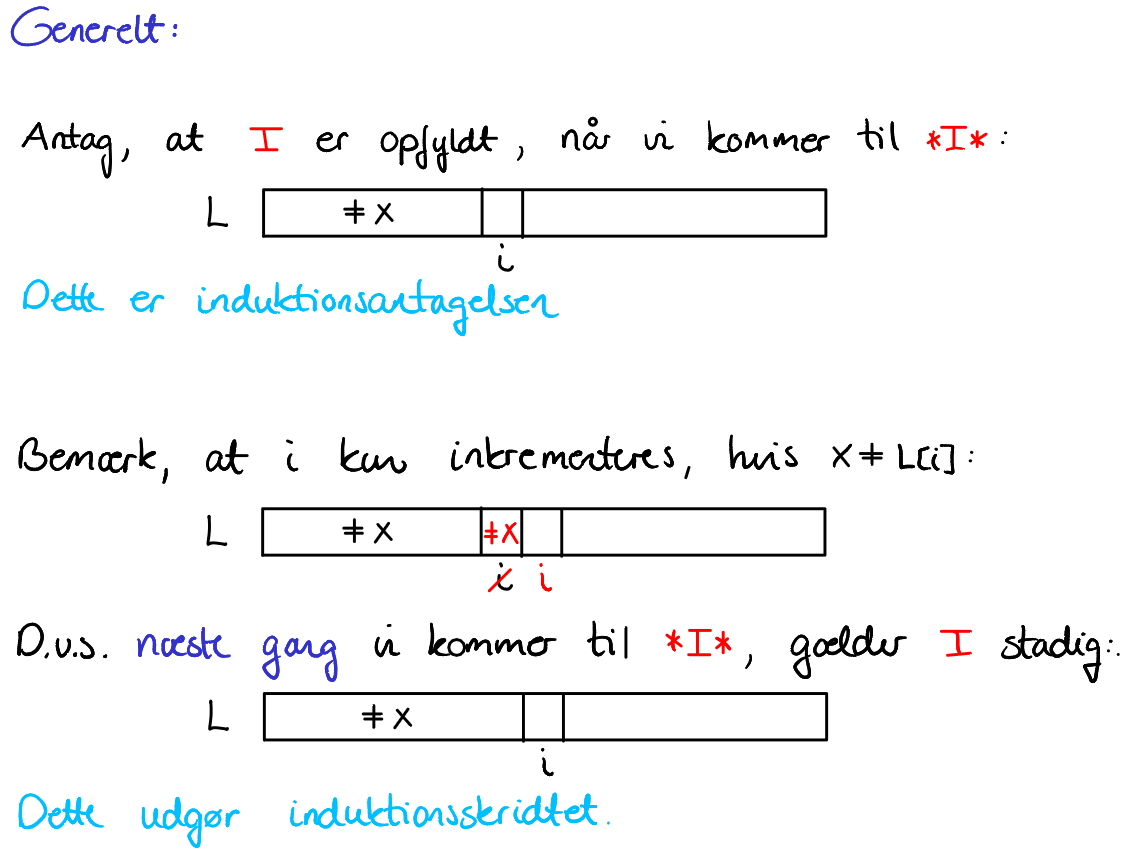 Generelt:
Antag, at I er opfyldt, når vi kommer til *I*:
L ≠ X
i
Dette er induktionsantagelsen
Bemærk, at i kun inkrementeres, hvis X ≠ L[i]:
L ≠ X ≠X
i i
D.v.s. næste gang vi kommer til *I*, gælder I stadig:
L ≠ X
i
Dette udgør induktionsskridtet.